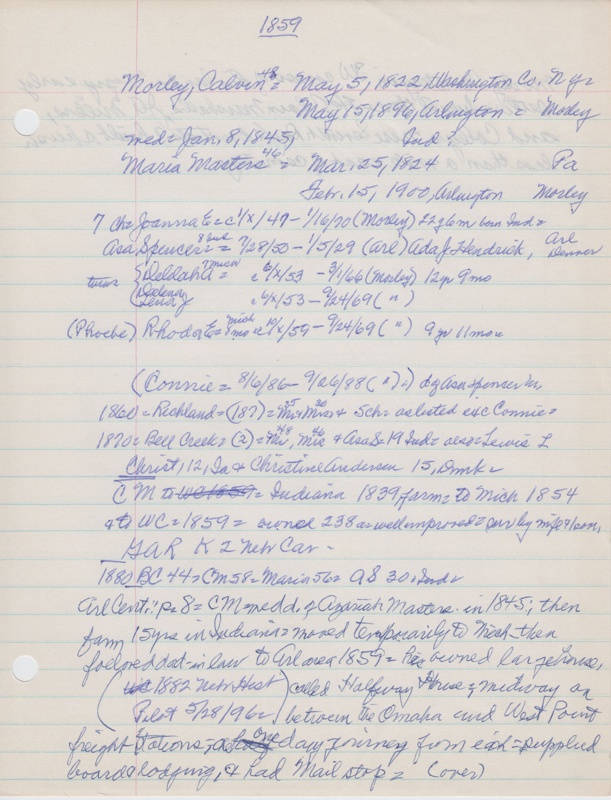 1859
Morley, Calvin 48 = May 5, 1822, Washington Co. N.Y. =
May 15, 1896, Arlington = Morley
med = Jan. 8, 1845, Ind =
Maria Masters 46 = Mar. 25, 1824 Pa
Febr. 15, 1900, Arlington Morley
7 ch = Joanna E = c 1/x/47 - 1/16/70 (Morley) 22 y 6 m born Ind =
Asa Spencer = 7/28/50 - 1/5/29 (Arl) Ada J. Hendrick, Arl
Denver
twins { Delilah = c 6/x/53 - 3/1/66 (Morley) 12 yr 9 mo
c 6/x/53 - 9/24/69 ( " )
(Phoebe) Rhoda E = 10/x/59 - 9/24/69 ( " ) 9 yr 11 mo =
(Connie = 8/6/86 - 9/26/98 ( " ) ) d of Asa Spencer
1860 = Richland = (187) = & 5 ch = as listed exc Connie =
1870 = Bell Creek = (2) = & Asa S = 19 Ind = also = Lewis L
Christ, 12, Ia & Christine Andersen 15, Dmk =
C M to WC 1859 = Indiana 1839, farm = to Mich 1854
& to WC = 1859 = owned 238 a = well improved =
GAR K 2 Nebr Cav -
1880 BC 44 = CM 58 = Maria 56 = AS 30, Ind =
Arl Cent: p 8 = CM = med d. of Azariah Masters in 1845; then
farm 15 yrs in Indiana = moved temporarily to Mich then
followed dat-in law to Arl area 1859 = He owned large house,
(WC 1882 Nebr Hist) called Halfway House = midway on
(Pilot 5/28/96 =) between the Omaha and West Point
freight stations; a day one day journey from each = supplied
board & lodging, & had Mail stop = (over)